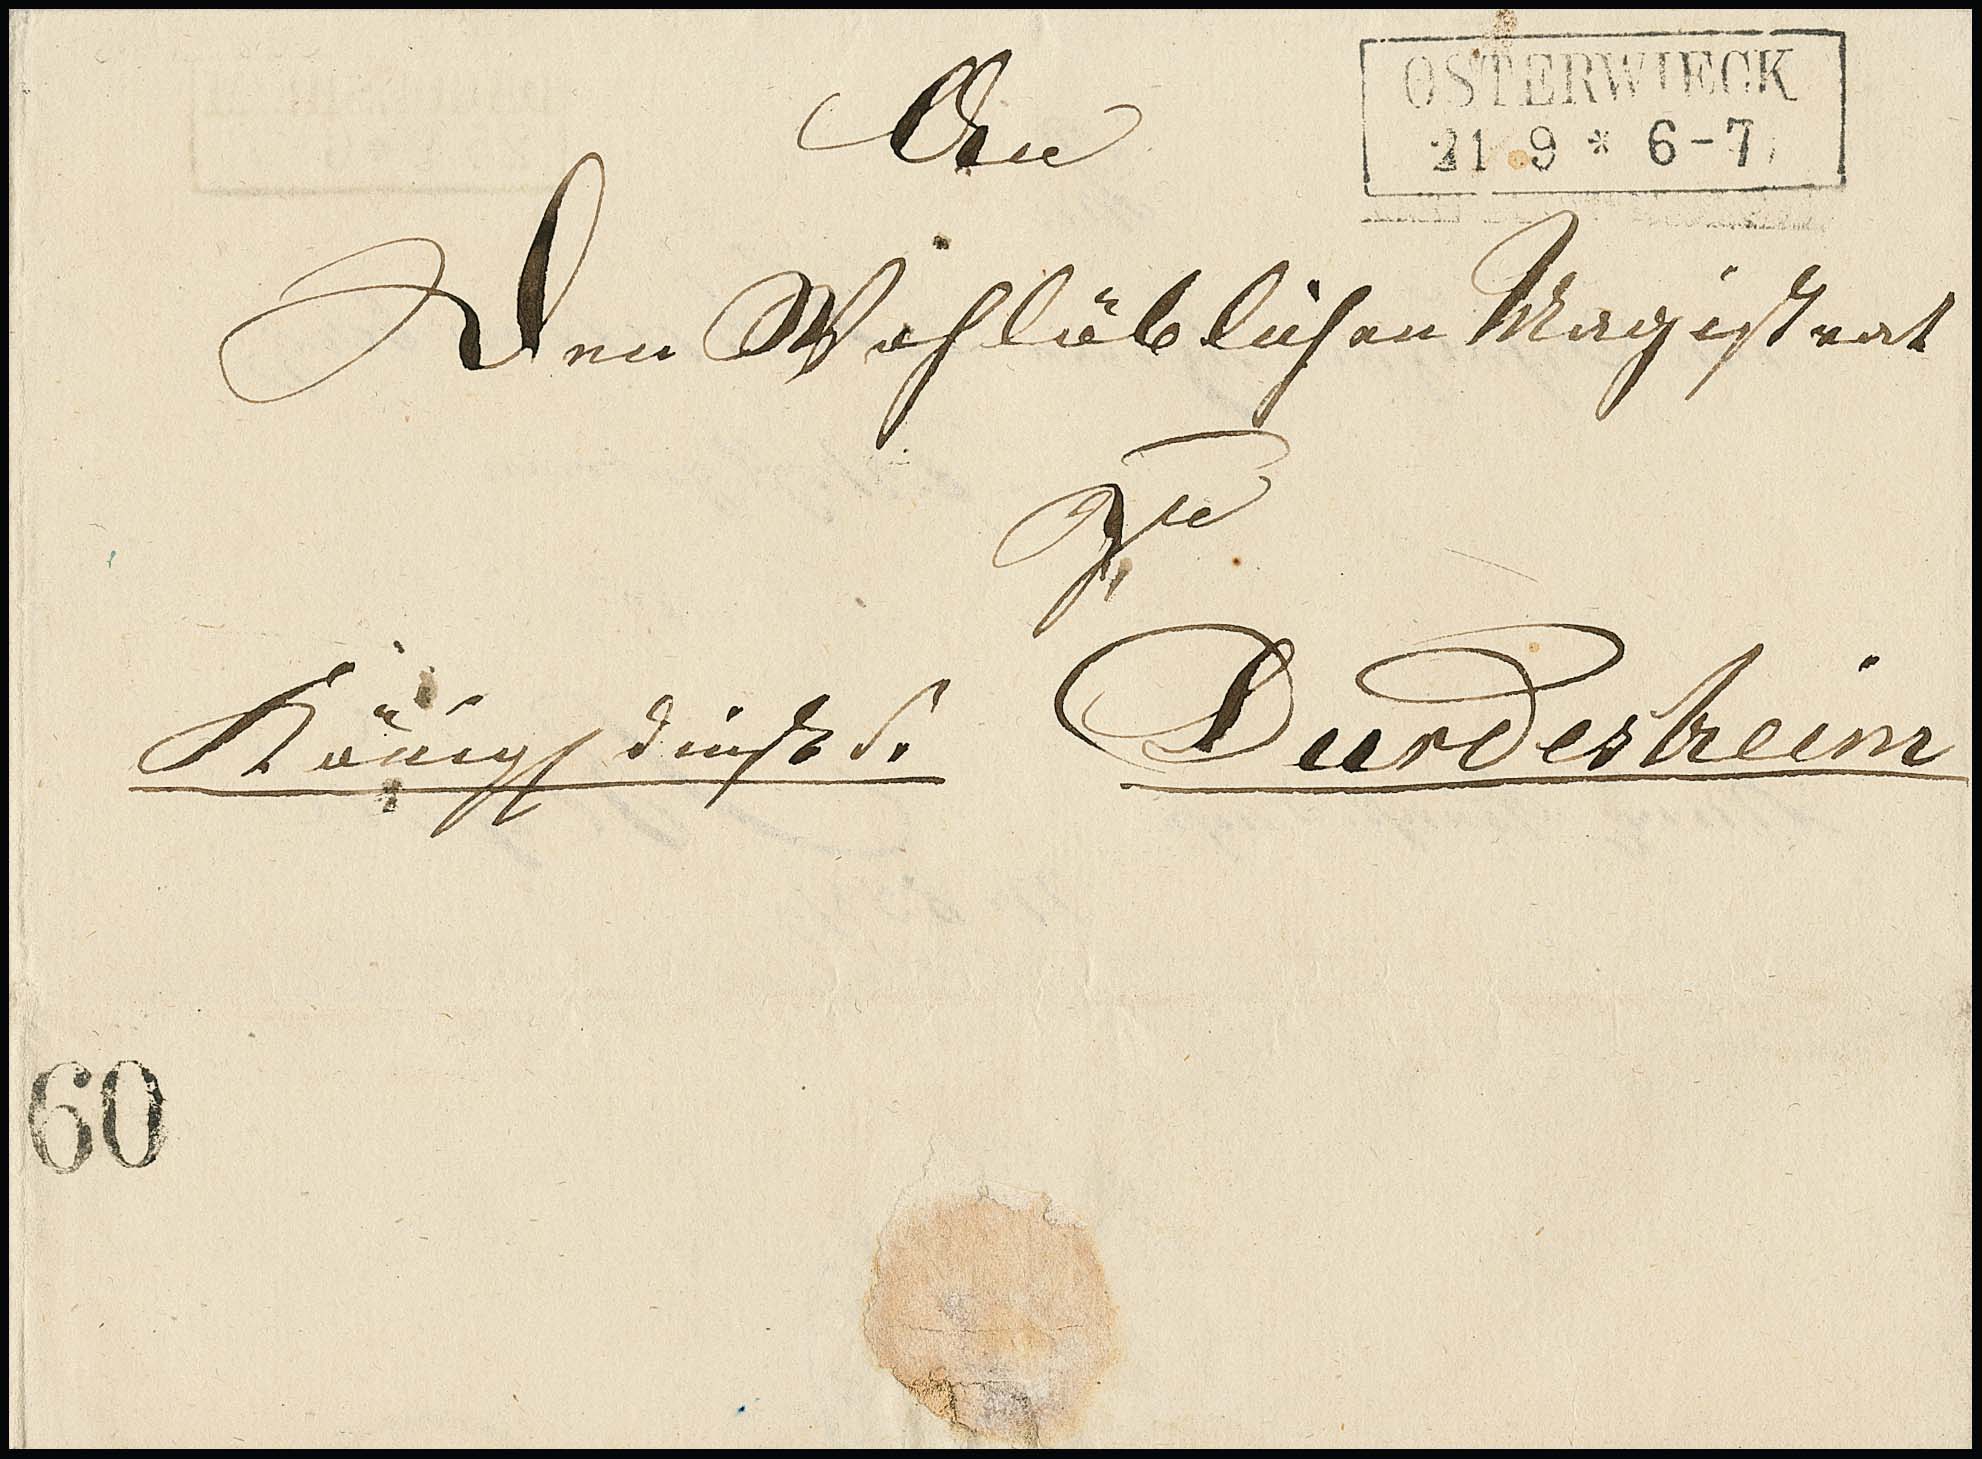 OSTERWIECK
21 9 * 6-7
An
Den Wohllöblichen Magistrat
zu
Königl dienst S.
Durdesheim
60